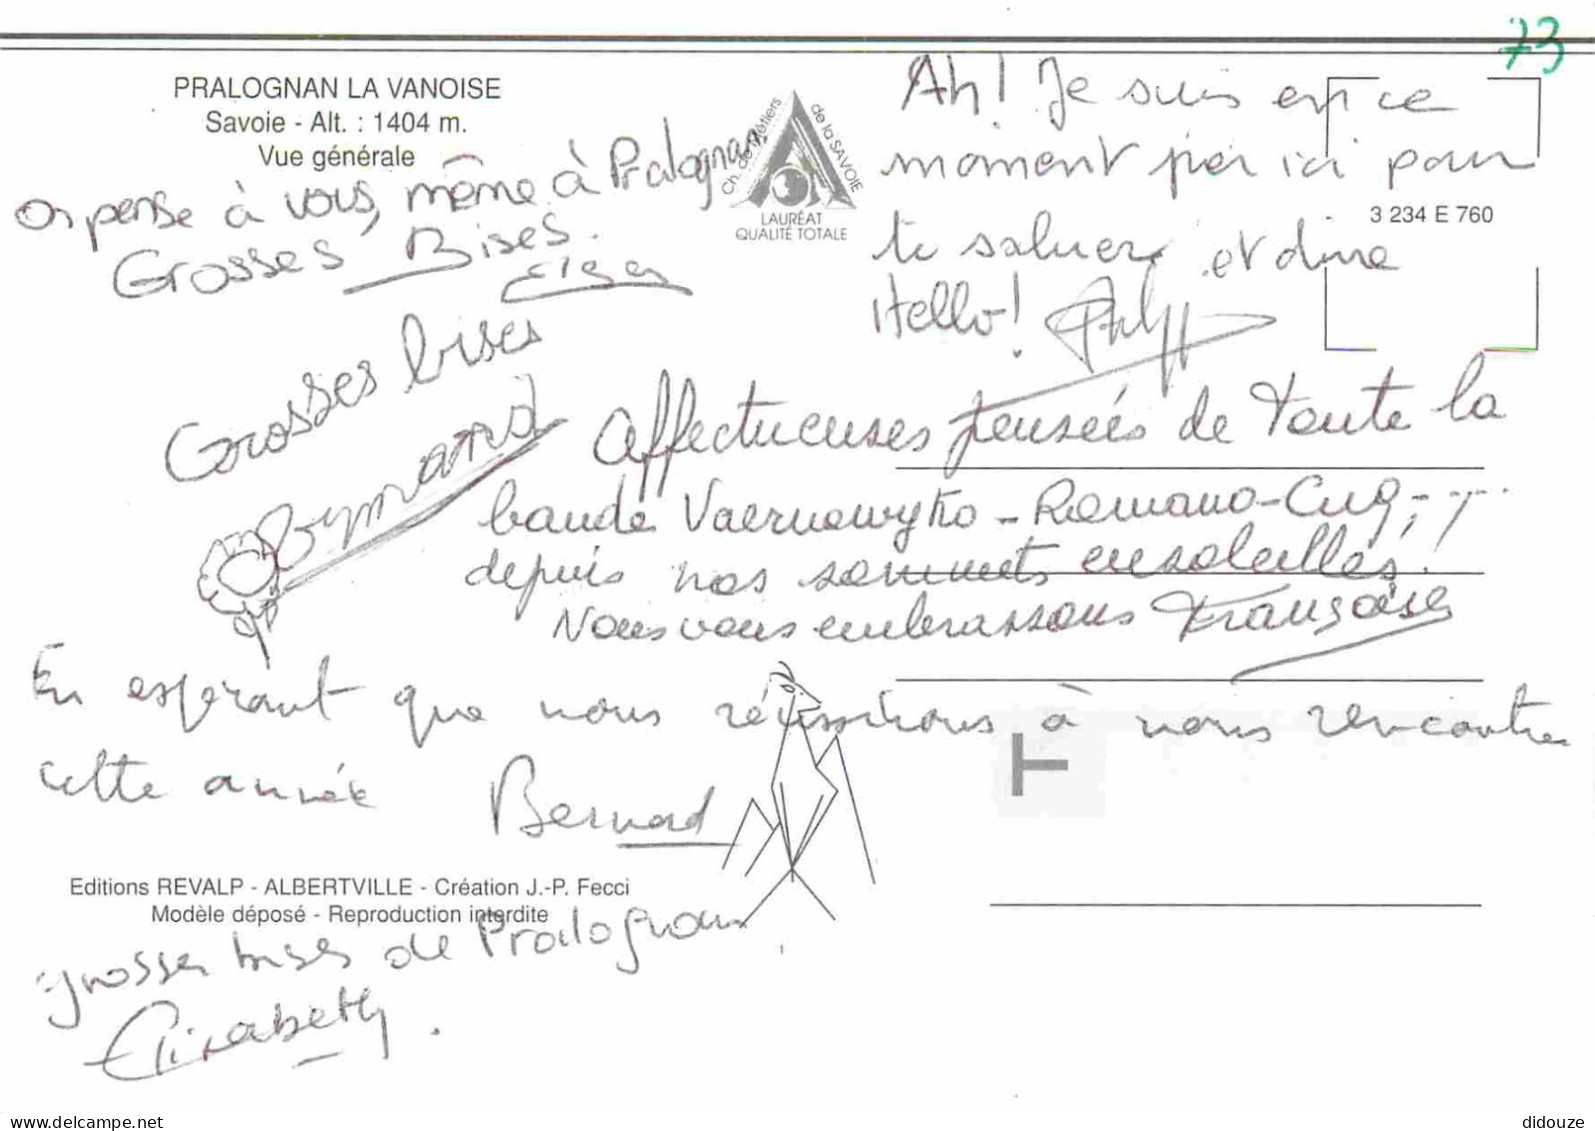 73
PRALOGNAN LA VANOISE
Savoie - Alt. : 1404 m.
Vue générale
Ch. de Métiers de la SAVOIE
LAURÉAT
QUALITÉ TOTALE
3 234 E 760
on pense à vous, même à Pralognan
Grosses Bises.
Ah! Je suis en ce
moment par ici pour
te saluer et dire
Hello!
Grosses bises
Affectueuses pensées de toute la
bande Vaernewyko - Romano - Cuq
depuis nos sommets ensoleillés.
Nous vous embrassons Françoise
En espérant que nous réussirons à nous rencontrer
cette année Bernard
T
Editions REVALP - ALBERTVILLE - Création J.-P. Fecci
Modèle déposé - Reproduction interdite
grosses bises de Pralognan
Elisabeth.
delcampe.net
didouze